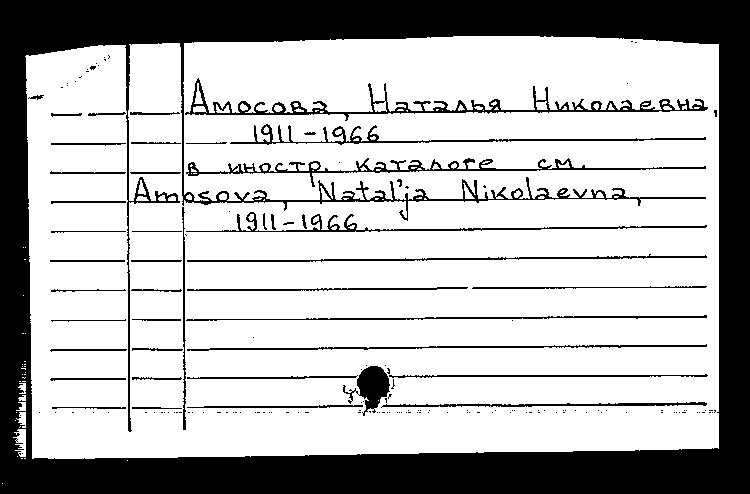 Амосова, Наталья Николаевна,
1911-1966
в иностр. каталоге см.
Amosova, Natal'ja Nikolaevna,
1911-1966.